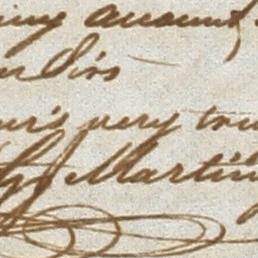 ing account
Sirs
very tru
Martin